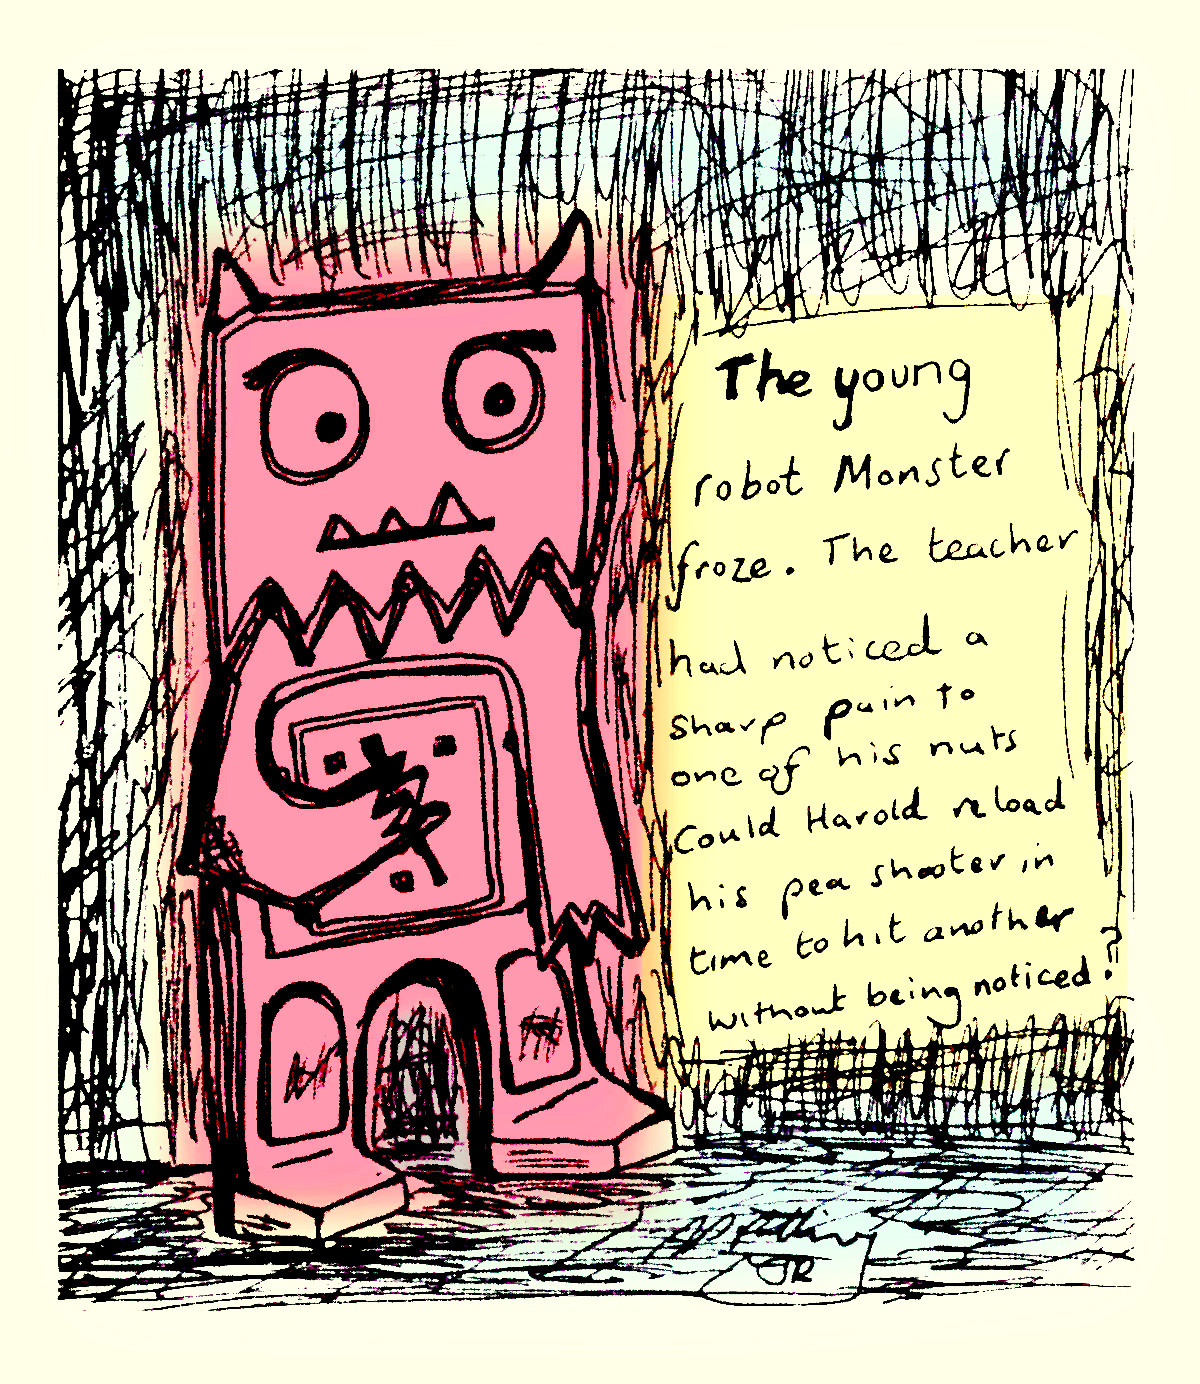 The young
robot Monster
froze. The teacher
had noticed a
Sharp pain to
one of his nuts
Could Harold reload
his pea shooter in
time to hit another
without being noticed?
JR